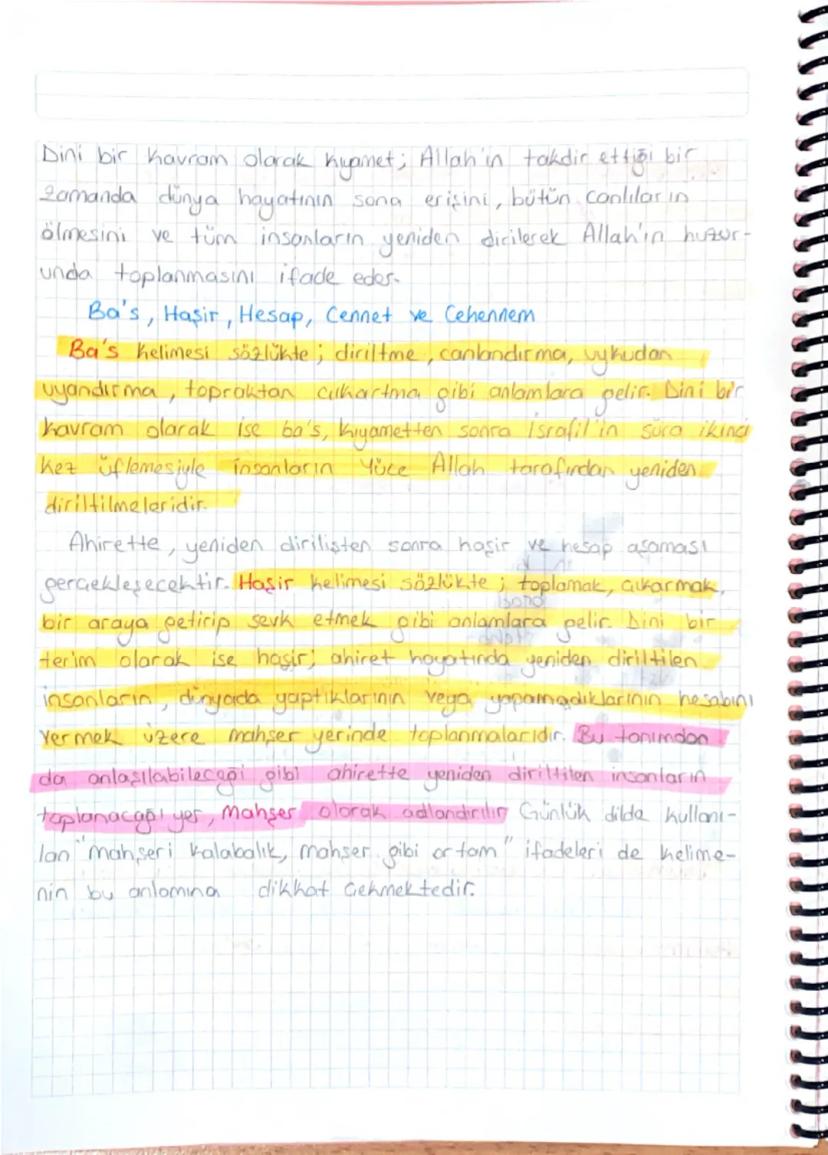 Dini bir kavram olarak kıyamet; Allah'ın takdir ettiği bir
zamanda dünya hayatının sona erişini, bütün canlıların
ölmesini ve tüm insanların yeniden dirilerek Allah'ın huzur-
unda toplanmasını ifade eder.
Ba's, Haşir, Hesap, Cennet ve Cehennem
Ba's kelimesi sözlükte; diriltme, canlandırma, uykudan
uyandırma, topraktan çıkartma gibi anlamlara gelir. Dini bir
kavram olarak ise ba's, kıyametten sonra İsrafil'in sûra ikinci
kez üflemesiyle insanların Yüce Allah tarafından yeniden
diriltilmeleridir.
Ahirette, yeniden dirilişten sonra haşir ve hesap aşaması
gerçekleşecektir. Haşir kelimesi sözlükte; toplamak, çıkarmak,
bir araya getirip sevk etmek gibi anlamlara gelir. Dini bir
terim olarak ise haşir; ahiret hayatında yeniden diriltilen
insanların, dünyada yaptıklarının veya yapamadıklarının hesabını
vermek üzere mahşer yerinde toplanmalarıdır. Bu tanımdan
da anlaşılabileceği gibi ahirette yeniden diriltilen insanların
toplanacağı yer, Mahşer olarak adlandırılır Günlük dilda kullanı-
lan "mahşeri kalabalık, mahşer gibi ortam" ifadeleri de kelime-
nin bu anlamına dikkat çekmektedir.